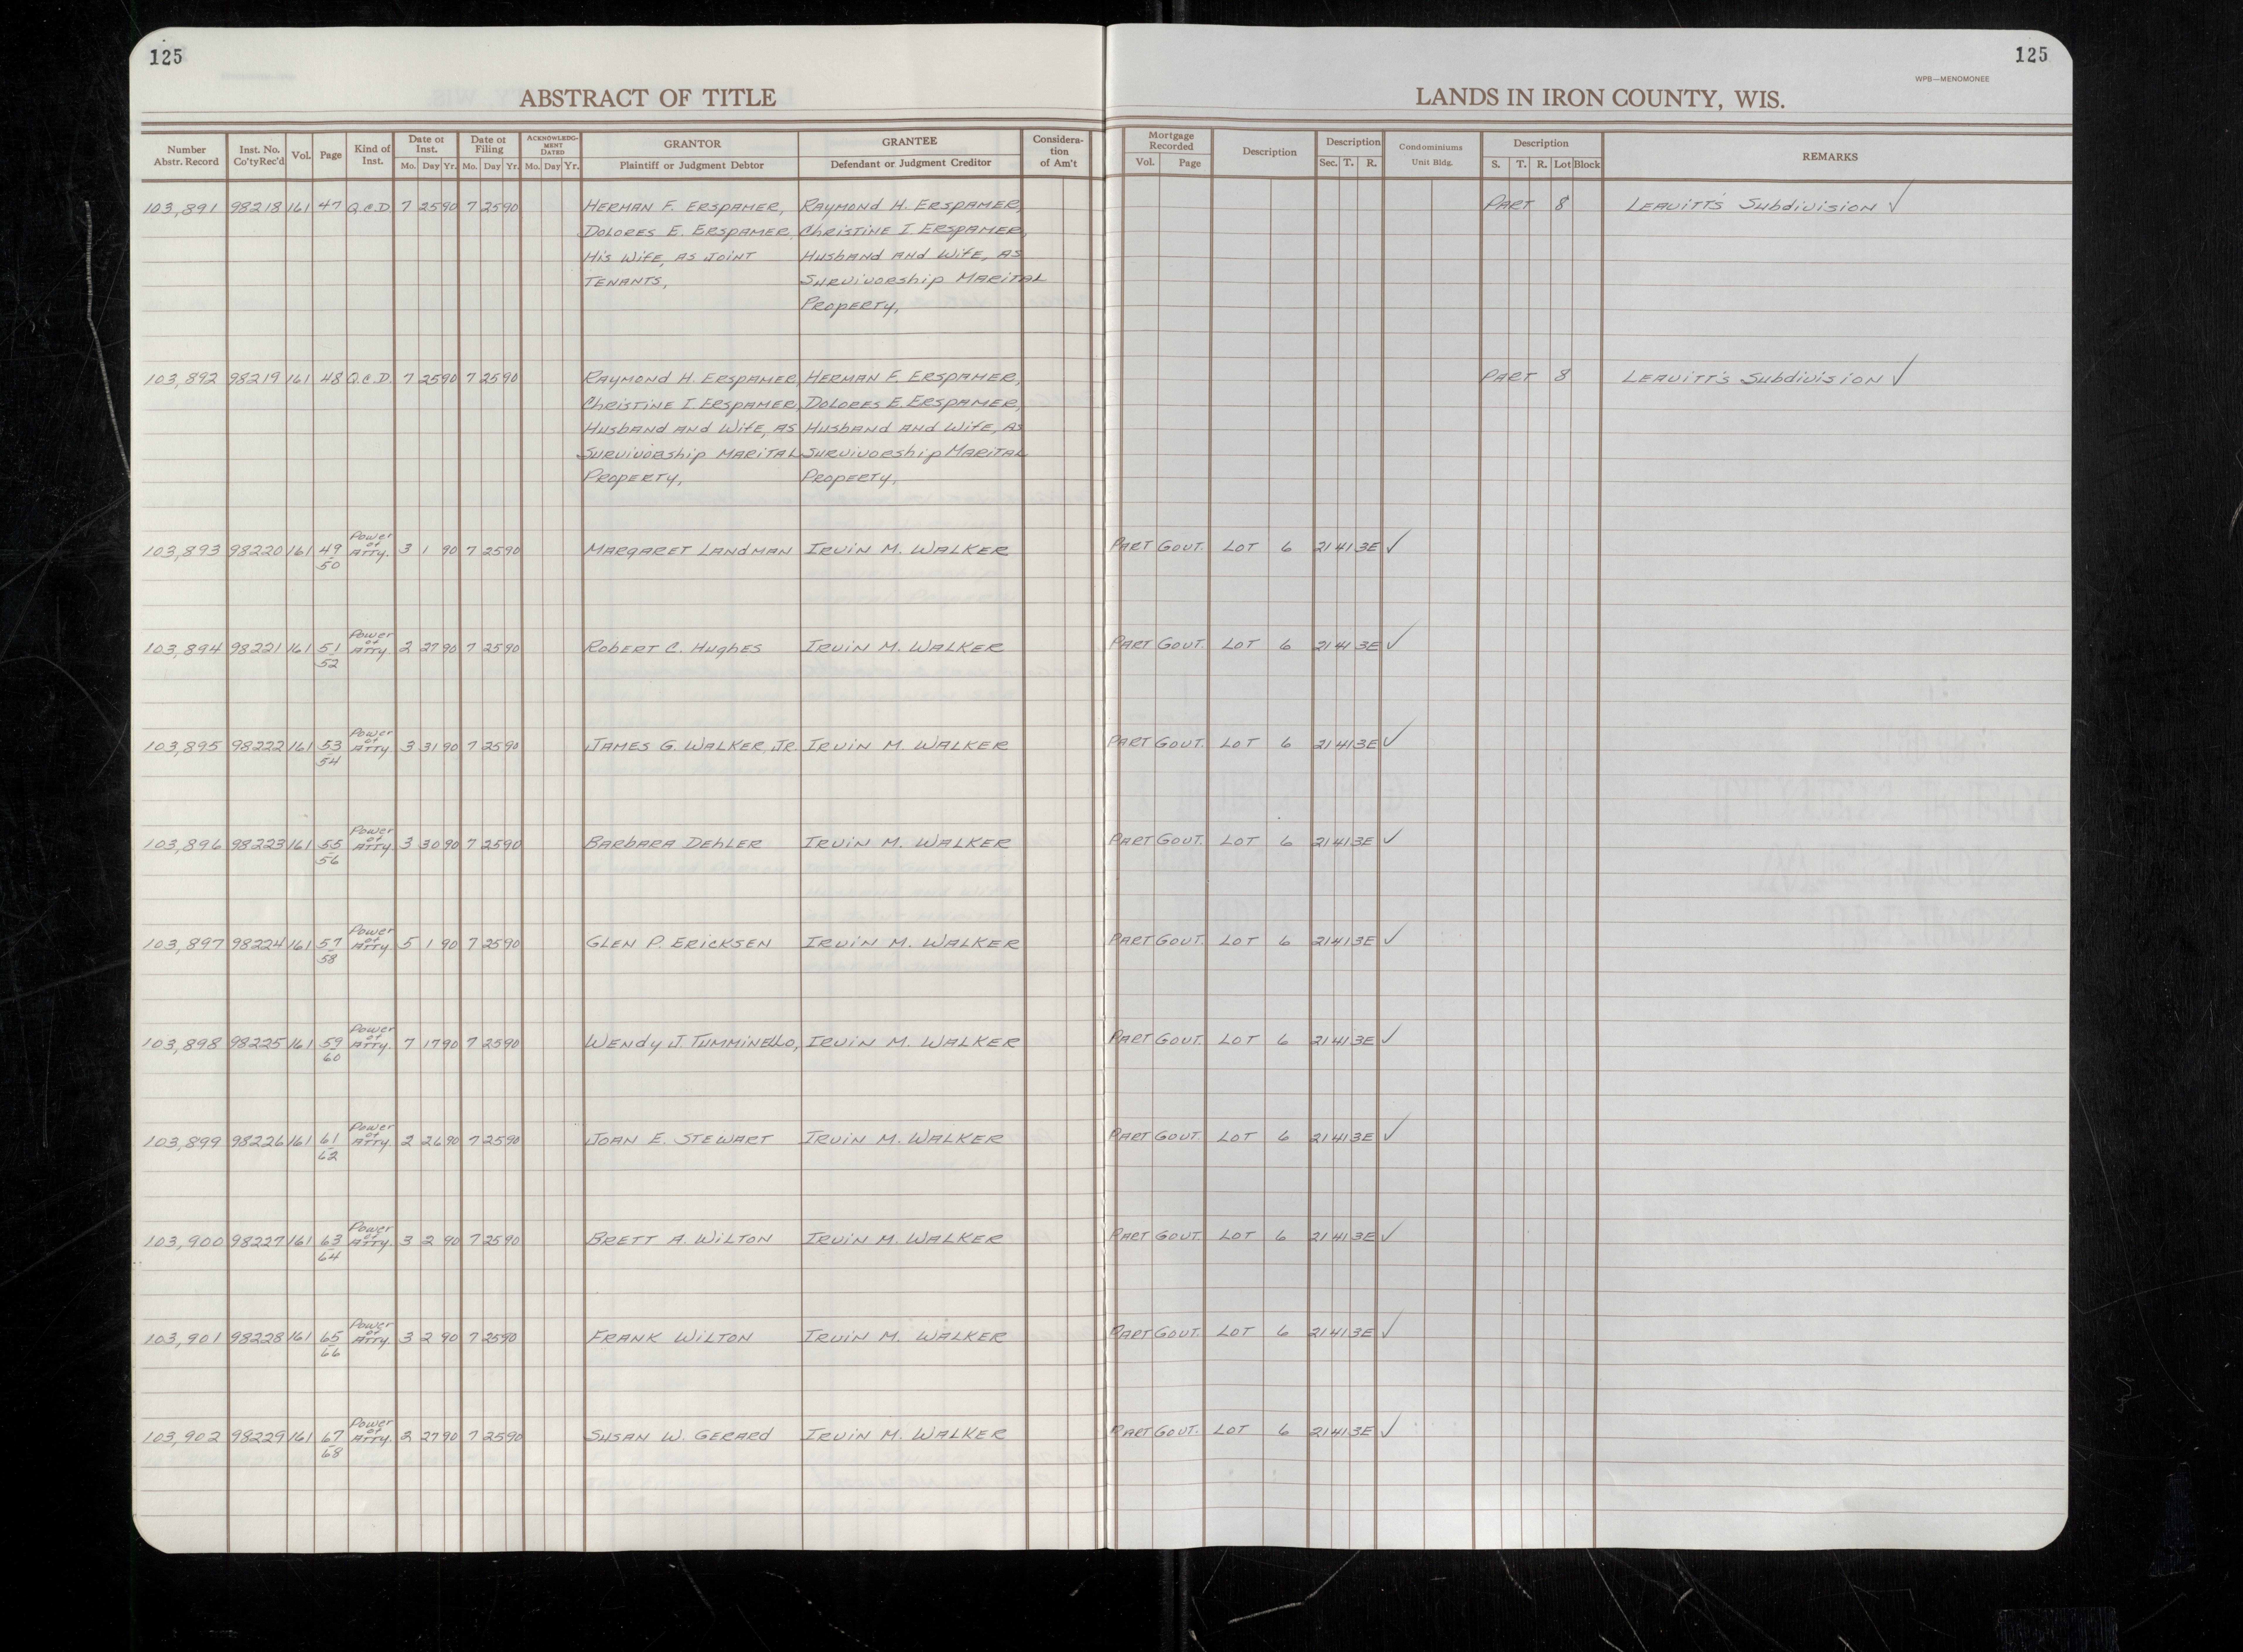 125
125
WPB—MENOMONEE
ABSTRACT OF TITLE
LANDS IN IRON COUNTY, WIS.
Number Abstr. Record | Inst. No. Co'ty Rec'd | Vol. | Page | Kind of Inst. | Date of Inst. Mo. Day Yr. | Date of Filing Mo. Day Yr. | ACKNOWLEDGMENT DATED Mo. Day Yr. | GRANTOR Plaintiff or Judgment Debtor | GRANTEE Defendant or Judgment Creditor | Consideration of Am't | Mortgage Recorded Vol. Page | Description | Description Sec. T. R. | Condominiums Unit Bldg. | Description S. T. R. Lot Block | REMARKS
103,891 98218 161 47 Q.C.D 7 25 90 7 25 90 HERMAN F. ERSPAMER, RAYMOND H. ERSPAMER, PART 8 LEAVITT'S Subdivision ✓
DOLORES E. ERSPAMER, CHRISTINE I. ERSPAMER,
His Wife, AS JOINT Husband and Wife, AS
TENANTS, Survivorship MARITAL
PROPERTY,
103,892 98219 161 48 Q.C.D. 7 25 90 7 25 90 RAYMOND H. ERSPAMER, HERMAN F. ERSPAMER, PART 8 LEAVITT'S Subdivision ✓
CHRISTINE I. ERSPAMER, DOLORES E. ERSPAMER,
Husband and Wife, AS Husband and Wife, AS
Survivorship MARITAL Survivorship MARITAL
PROPERTY, PROPERTY,
103,893 98220 161 49-50 Power of ATTY. 3 1 90 7 25 90 MARGARET LANDMAN IRVIN M. WALKER PART GOVT. LOT 6 21 41 3E ✓
103,894 98221 161 51-52 Power of ATTY. 2 27 90 7 25 90 ROBERT C. HUGHES IRVIN M. WALKER PART GOVT. LOT 6 21 41 3E ✓
103,895 98222 161 53-54 Power of ATTY 3 31 90 7 25 90 JAMES G. WALKER, JR. IRVIN M. WALKER PART GOVT. LOT 6 21 41 3E ✓
103,896 98223 161 55-56 Power of ATTY. 3 30 90 7 25 90 BARBARA DEHLER IRVIN M. WALKER PART GOVT. LOT 6 21 41 3E ✓
103,897 98224 161 57-58 Power of ATTY 5 1 90 7 25 90 GLEN P. ERICKSEN IRVIN M. WALKER PART GOVT. LOT 6 21 41 3E ✓
103,898 98225 161 59-60 Power of ATTY. 7 17 90 7 25 90 WENDY J. TUMMINELLO, IRVIN M. WALKER PART GOVT. LOT 6 21 41 3E ✓
103,899 98226 161 61-62 Power of ATTY. 2 26 90 7 25 90 JOAN E. STEWART IRVIN M. WALKER PART GOVT. LOT 6 21 41 3E ✓
103,900 98227 161 63-64 Power of ATTY. 3 2 90 7 25 90 BRETT A. WILTON IRVIN M. WALKER PART GOVT. LOT 6 21 41 3E ✓
103,901 98228 161 65-66 Power of ATTY. 3 2 90 7 25 90 FRANK WILTON IRVIN M. WALKER PART GOVT. LOT 6 21 41 3E ✓
103,902 98229 161 67-68 Power of ATTY. 2 27 90 7 25 90 SUSAN W. GERARD IRVIN M. WALKER PART GOVT. LOT 6 21 41 3E ✓